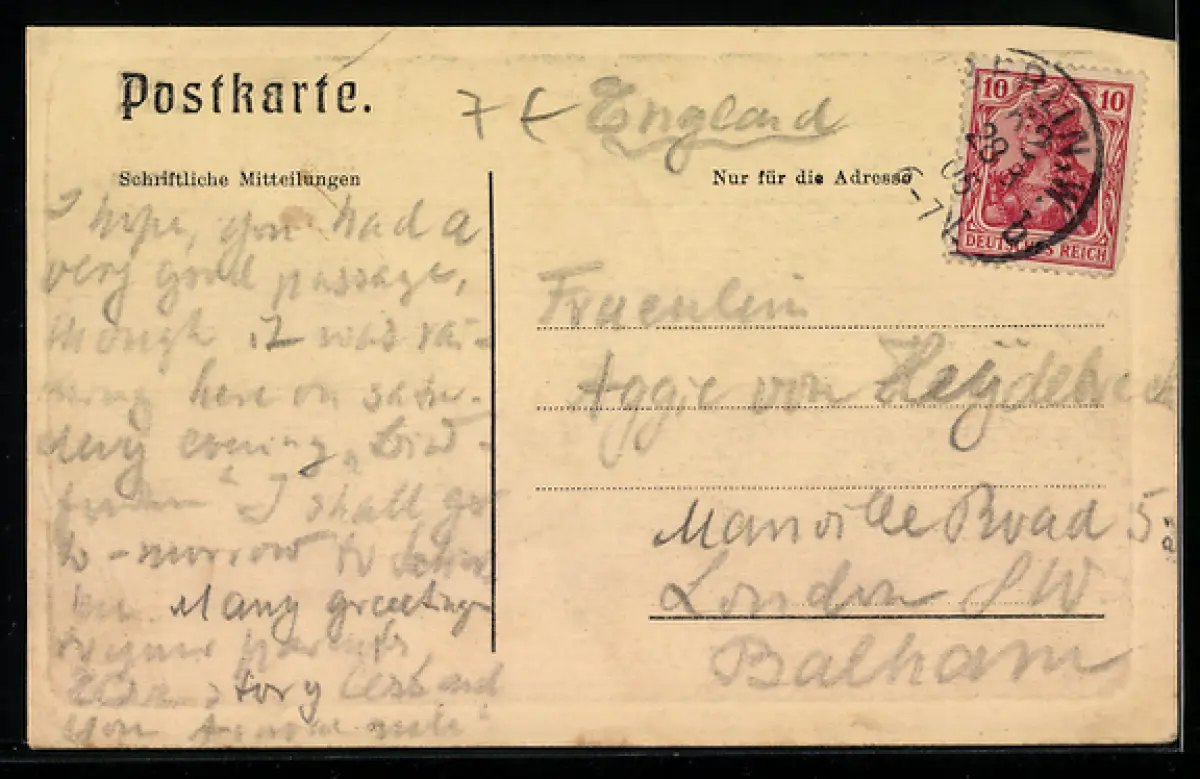 Postkarte.
England
Schriftliche Mitteilungen
Nur für die Adresse
10 10
DEUTSCHES REICH
BERLIN W.
28
6-7N.
I hope, you had a
very good passage,
though it was rai-
ning here on satur-
day evening
I shall go
to-morrow to
Many greetings
to your parents
Fraeulein
Aggie von Heydebreck
Manville Road 5
London SW.
Balham